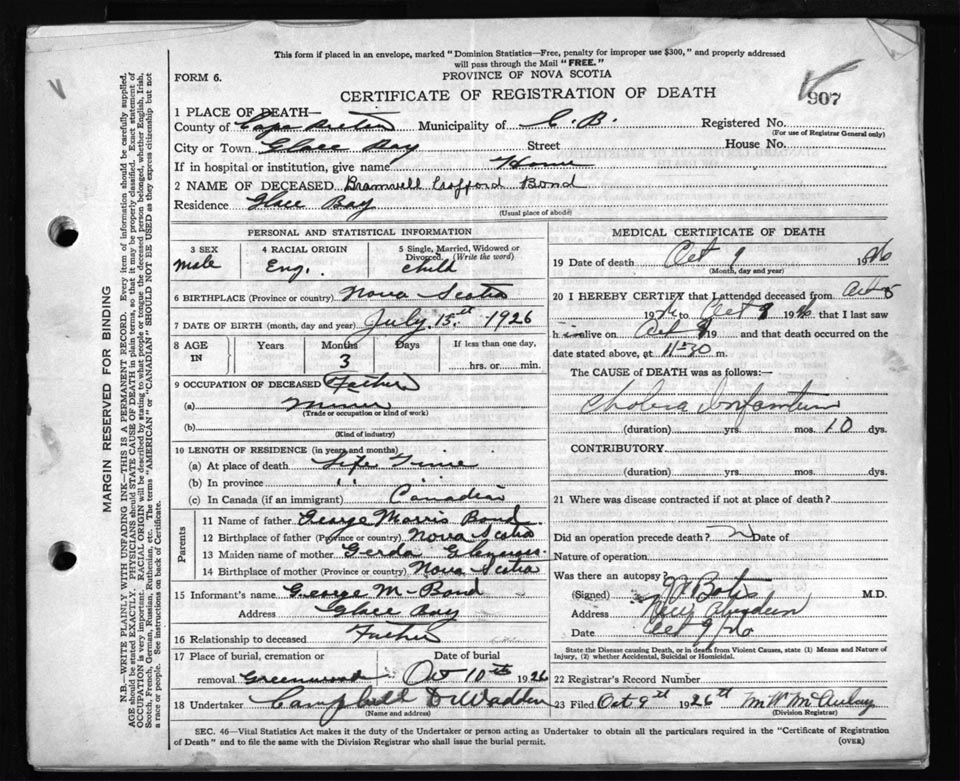 This form if placed in an envelope, marked "Dominion Statistics—Free, penalty for improper use $300," and properly addressed
will pass through the Mail "FREE."
FORM 6.
PROVINCE OF NOVA SCOTIA
CERTIFICATE OF REGISTRATION OF DEATH
907
1 PLACE OF DEATH—
County of Cape Breton Municipality of C. B. Registered No.
(For use of Registrar General only)
City or Town Glace Bay Street House No.
If in hospital or institution, give name Home
2 NAME OF DECEASED Bramwell Bond
Residence Glace Bay
(Usual place of abode)
PERSONAL AND STATISTICAL INFORMATION
3 SEX
male
4 RACIAL ORIGIN
Eng.
5 Single, Married, Widowed or Divorced. (Write the word)
child
6 BIRTHPLACE (Province or country) Nova Scotia
7 DATE OF BIRTH (month, day and year) July 15th 1926
8 AGE IN
Years Months Days If less than one day,
3 hrs. or min.
9 OCCUPATION OF DECEASED Father
(a) Miner
(Trade or occupation or kind of work)
(b)
(Kind of industry)
10 LENGTH OF RESIDENCE (in years and months)
(a) At place of death Life Time
(b) In province " "
(c) In Canada (if an immigrant) Canadian
Parents
11 Name of father George Morris Bond
12 Birthplace of father (Province or country) Nova Scotia
13 Maiden name of mother Gerda
14 Birthplace of mother (Province or country) Nova Scotia
15 Informant's name George M. Bond
Address Glace Bay
16 Relationship to deceased Father
17 Place of burial, cremation or removal Greenwood
Date of burial
Oct 10th 1926
18 Undertaker Campbell
(Name and address)
MEDICAL CERTIFICATE OF DEATH
19 Date of death Oct 9 1926
(Month, day and year)
20 I HEREBY CERTIFY that I attended deceased from Oct 5
19 to Oct 9 19 that I last saw
h alive on Oct 19 and that death occurred on the
date stated above, at 11-30 m.
The CAUSE of DEATH was as follows:—
Cholera Infantum
(duration) yrs. mos. 10 dys.
CONTRIBUTORY
(duration) yrs. mos. dys.
21 Where was disease contracted if not at place of death?
Did an operation precede death? Date of
Nature of operation
Was there an autopsy?
(Signed) M.D.
Address New Aberdeen
Date Oct 9/26
State the Disease causing Death, or in death from Violent Causes, state (1) Means and Nature of Injury, (2) whether Accidental, Suicidal or Homicidal.
22 Registrar's Record Number
23 Filed Oct 9th 1926
(Division Registrar)
SEC. 46—Vital Statistics Act makes it the duty of the Undertaker or person acting as Undertaker to obtain all the particulars required in the "Certificate of Registration
of Death" and to file the same with the Division Registrar who shall issue the burial permit.
(OVER)
MARGIN RESERVED FOR BINDING
N.B.—WRITE PLAINLY WITH UNFADING INK—THIS IS A PERMANENT RECORD. Every item of information should be carefully supplied.
AGE should be stated EXACTLY. PHYSICIANS should STATE CAUSE OF DEATH in plain terms, so that it may be properly classified. Exact statement of
OCCUPATION is very important. RACIAL ORIGIN will be described by stating to what people or tongue the deceased person belonged, whether English, Irish,
Scotch, French, German, Russian, Ruthenian, etc. The terms "AMERICAN" or "CANADIAN" SHOULD NOT BE USED as they express citizenship but not
a race or people. See instructions on back of Certificate.